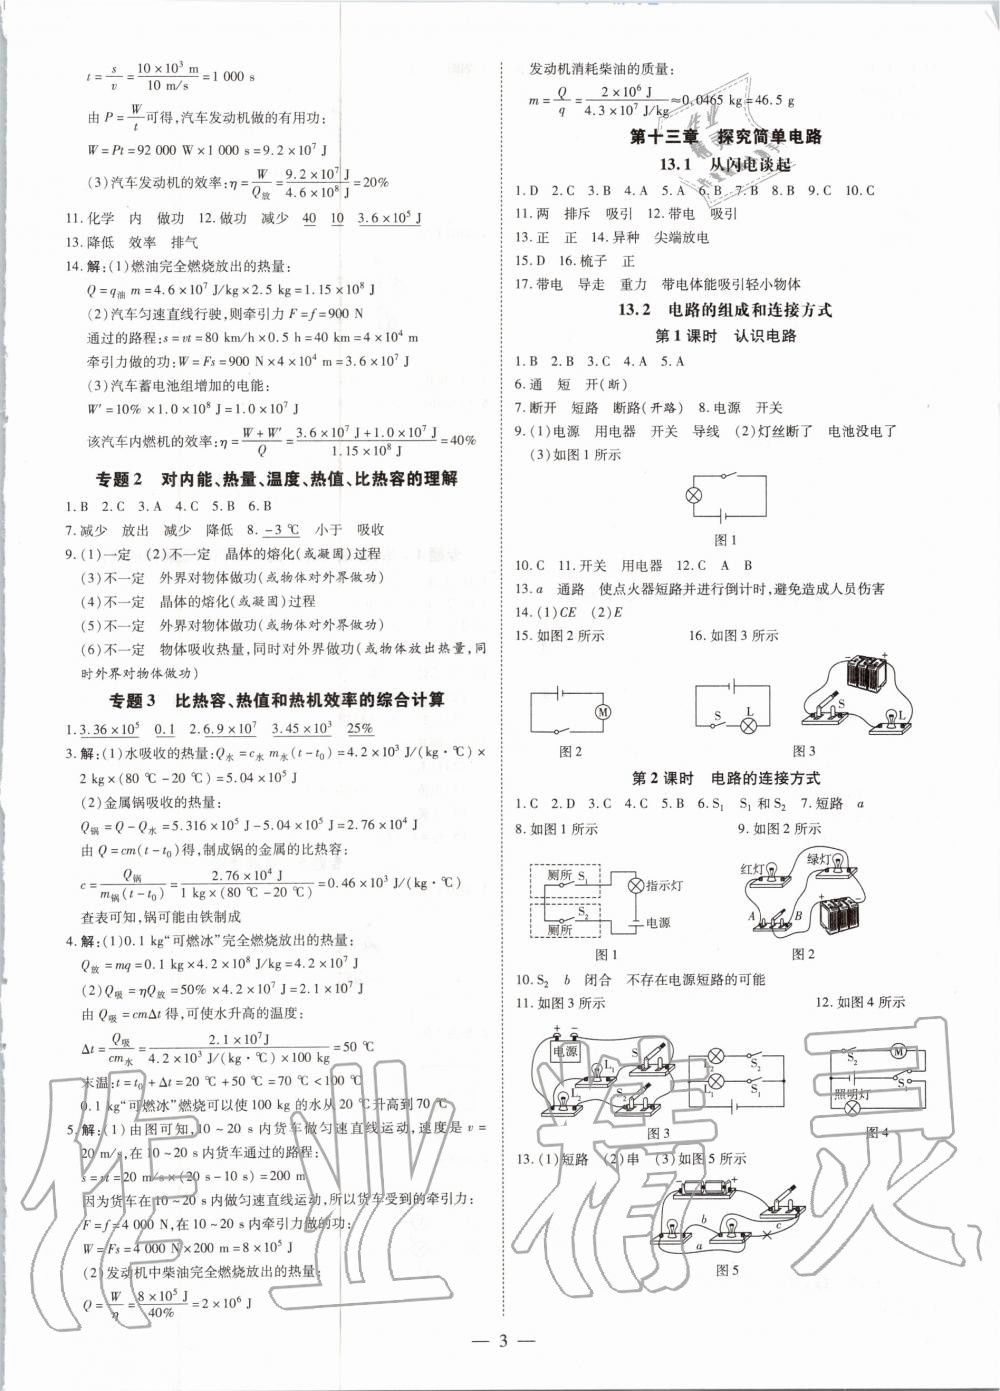 t=s/v=10×10³ m/10 m/s=1 000 s
由 P=W/t可得,汽车发动机做的有用功:
W=Pt=92 000 W×1 000 s=9.2×10⁷ J
(3)汽车发动机的效率:η=W/Q放=9.2×10⁷ J/4.6×10⁸ J=20%
11.化学 内 做功 12.做功 减少 40 10 3.6×10⁵ J
13.降低 效率 排气
14.解:(1)燃油完全燃烧放出的热量:
Q=q油 m=4.6×10⁷ J/kg×2.5 kg=1.15×10⁸ J
(2)汽车匀速直线行驶,则牵引力 F=f=900 N
通过的路程:s=vt=80 km/h×0.5 h=40 km=4×10⁴ m
牵引力做的功:W=Fs=900 N×4×10⁴ m=3.6×10⁷ J
(3)汽车蓄电池组增加的电能:
W′=10%×1.0×10⁸ J=1.0×10⁷ J
该汽车内燃机的效率:η=W+W′/Q=3.6×10⁷ J+1.0×10⁷ J/1.15×10⁸ J=40%
专题2 对内能、热量、温度、热值、比热容的理解
1.B 2.C 3.A 4.C 5.B 6.B
7.减少 放出 减少 降低 8.-3 ℃ 小于 吸收
9.(1)一定 (2)不一定 晶体的熔化(或凝固)过程
(3)不一定 外界对物体做功(或物体对外界做功)
(4)不一定 晶体的熔化(或凝固)过程
(5)不一定 外界对物体做功(或物体对外界做功)
(6)不一定 物体吸收热量,同时对外做功(或物体放出热量,同
时外界对物体做功)
专题3 比热容、热值和热机效率的综合计算
1.3.36×10⁵ 0.1 2.6.9×10⁷ 3.45×10³ 25%
3.解:(1)水吸收的热量:Q水=c水 m水(t-t₀)=4.2×10³ J/(kg·℃)×
2 kg×(80 ℃-20 ℃)=5.04×10⁵ J
(2)金属锅吸收的热量:
Q锅=Q-Q水=5.316×10⁵ J-5.04×10⁵ J=2.76×10⁴ J
由 Q=cm(t-t₀)得,制成锅的金属的比热容:
c=Q锅/m锅(t-t₀)=2.76×10⁴ J/1 kg×(80 ℃-20 ℃)=0.46×10³ J/(kg·℃)
查表可知,锅可能由铁制成
4.解:(1)0.1 kg“可燃冰”完全燃烧放出的热量:
Q放=mq=0.1 kg×4.2×10⁸ J/kg=4.2×10⁷ J
(2)Q吸=ηQ放=50%×4.2×10⁷ J=2.1×10⁷ J
由 Q吸=cmΔt得,可使水升高的温度:
Δt=Q吸/cm水=2.1×10⁷J/4.2×10³ J/(kg·℃)×100 kg=50 ℃
末温:t=t₀+Δt=20 ℃+50 ℃=70 ℃<100 ℃
0.1 kg“可燃冰”燃烧可以使 100 kg 的水从 20 ℃升高到 70 ℃
5.解:(1)由图可知,10~20 s 内货车做匀速直线运动,速度是 v=
20 m/s,在 10~20 s 内货车通过的路程:
s=vt=20 m/s×(20 s-10 s)=200 m
因为货车在 10~20 s 内做匀速直线运动,所以货车受到的牵引力:
F=f=4 000 N,在 10~20 s 内牵引力做的功:
W=Fs=4 000 N×200 m=8×10⁵ J
(2)发动机中柴油完全燃烧放出的热量:
Q=W/η=8×10⁵ J/40%=2×10⁶ J
发动机消耗柴油的质量:
m=Q/q=2×10⁶ J/4.3×10⁷ J/kg≈0.0465 kg=46.5 g
第十三章 探究简单电路
13.1 从闪电谈起
1.D 2.C 3.B 4.A 5.A 6.B 7.B 8.B 9.C 10.C
11.两 排斥 吸引 12.带电 吸引
13.正 正 14.异种 尖端放电
15.D 16.梳子 正
17.带电 导走 重力 带电体能吸引轻小物体
13.2 电路的组成和连接方式
第1课时 认识电路
1.B 2.B 3.C 4.A 5.A
6.通 短 开(断)
7.断开 短路 断路(开路) 8.电源 开关
9.(1)电源 用电器 开关 导线 (2)灯丝断了 电池没电了
(3)如图1所示
图1
10.C 11.开关 用电器 12.C A B
13.a 通路 使点火器短路并进行倒计时,避免造成人员伤害
14.(1)CE (2)E
15.如图2所示 16.如图3所示
M
图2
S L
+ - S L
图3
第2课时 电路的连接方式
1.C 2.D 3.B 4.C 5.B 6.S₁ S₁ 和 S₂ 7.短路 a
8.如图1所示 9.如图2所示
厕所 S₁
指示灯
S₂
厕所
电源
图1
红灯 绿灯
A B
图2
10.S₂ b 闭合 不存在电源短路的可能
11.如图3所示 12.如图4所示
+ -
电源
S L₁
L₂
L₂ S₂
L₁ S
图3
S₂ M
S₁
照明灯
图4
13.(1)短路 (2)串 (3)如图5所示
b
c
a
图5
— 3 —
作业精灵